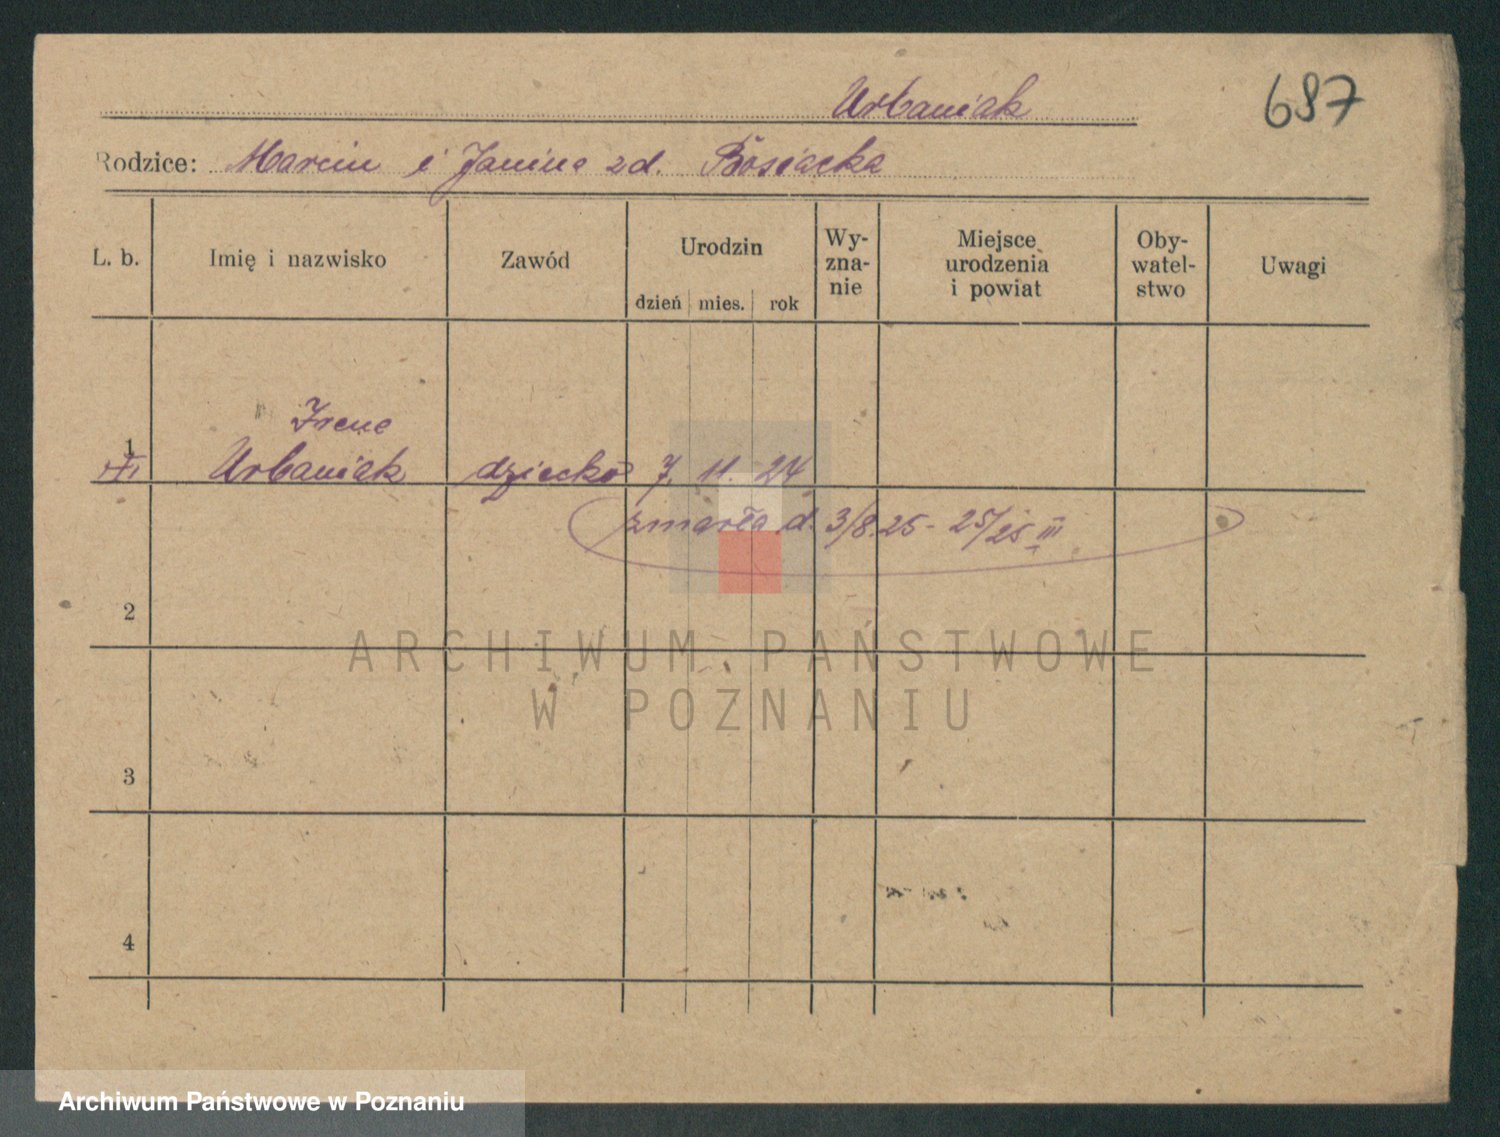 Urbaniak
687
Rodzice: Marcin i Janina zd. Bosiacka
L. b. Imię i nazwisko Zawód Urodzin dzień mies. rok Wy-zna-nie Miejsce urodzenia i powiat Oby-watel-stwo Uwagi
Irena
1 Urbaniak dziecko 7. 11. 24
zmarła d. 3/8.25 - 25/25 III
2
ARCHIWUM PAŃSTWOWE
W POZNANIU
3
4
Archiwum Państwowe w Poznaniu